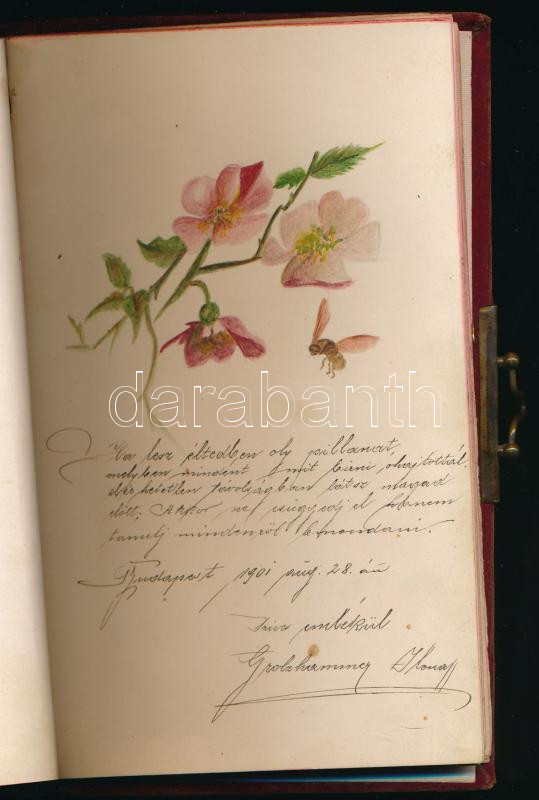 darabanth
Ha lesz éltedben oly pillanat
melyben mindent mit birni óhajtottál,
elérhetetlen távolságban látsz magad
előtt; Akkor ne csüggedj el hanem
tanulj mindenről lemondani.
Budapest, 1901 aug. 28.-án
Szives emlékül
Grolzhammer Ilona